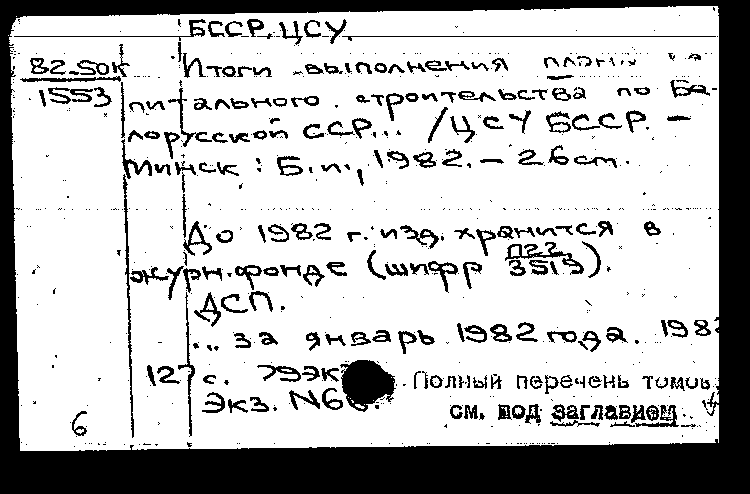 БССР. ЦСУ.
82-5ок Итоги выполнения плана ка-
1553 питального строительства по Бе-
лорусской ССР... /ЦСУ БССР. –
Минск : Б.и., 1982. – 26 см.
До 1982 г. изд. хранится в
журн. фонде (шифр П22/3513).
ДСП.
... за январь 1982 года. 198
127 с. 79 эк
Экз. N6
Полный перечень томов
см. под заглавием
6